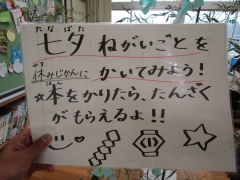 たなばた
七夕 ねがいごとを
やす
休みじかんに かいてみよう!
ほん
☆本をかりたら、たんざく
がもらえるよ!!